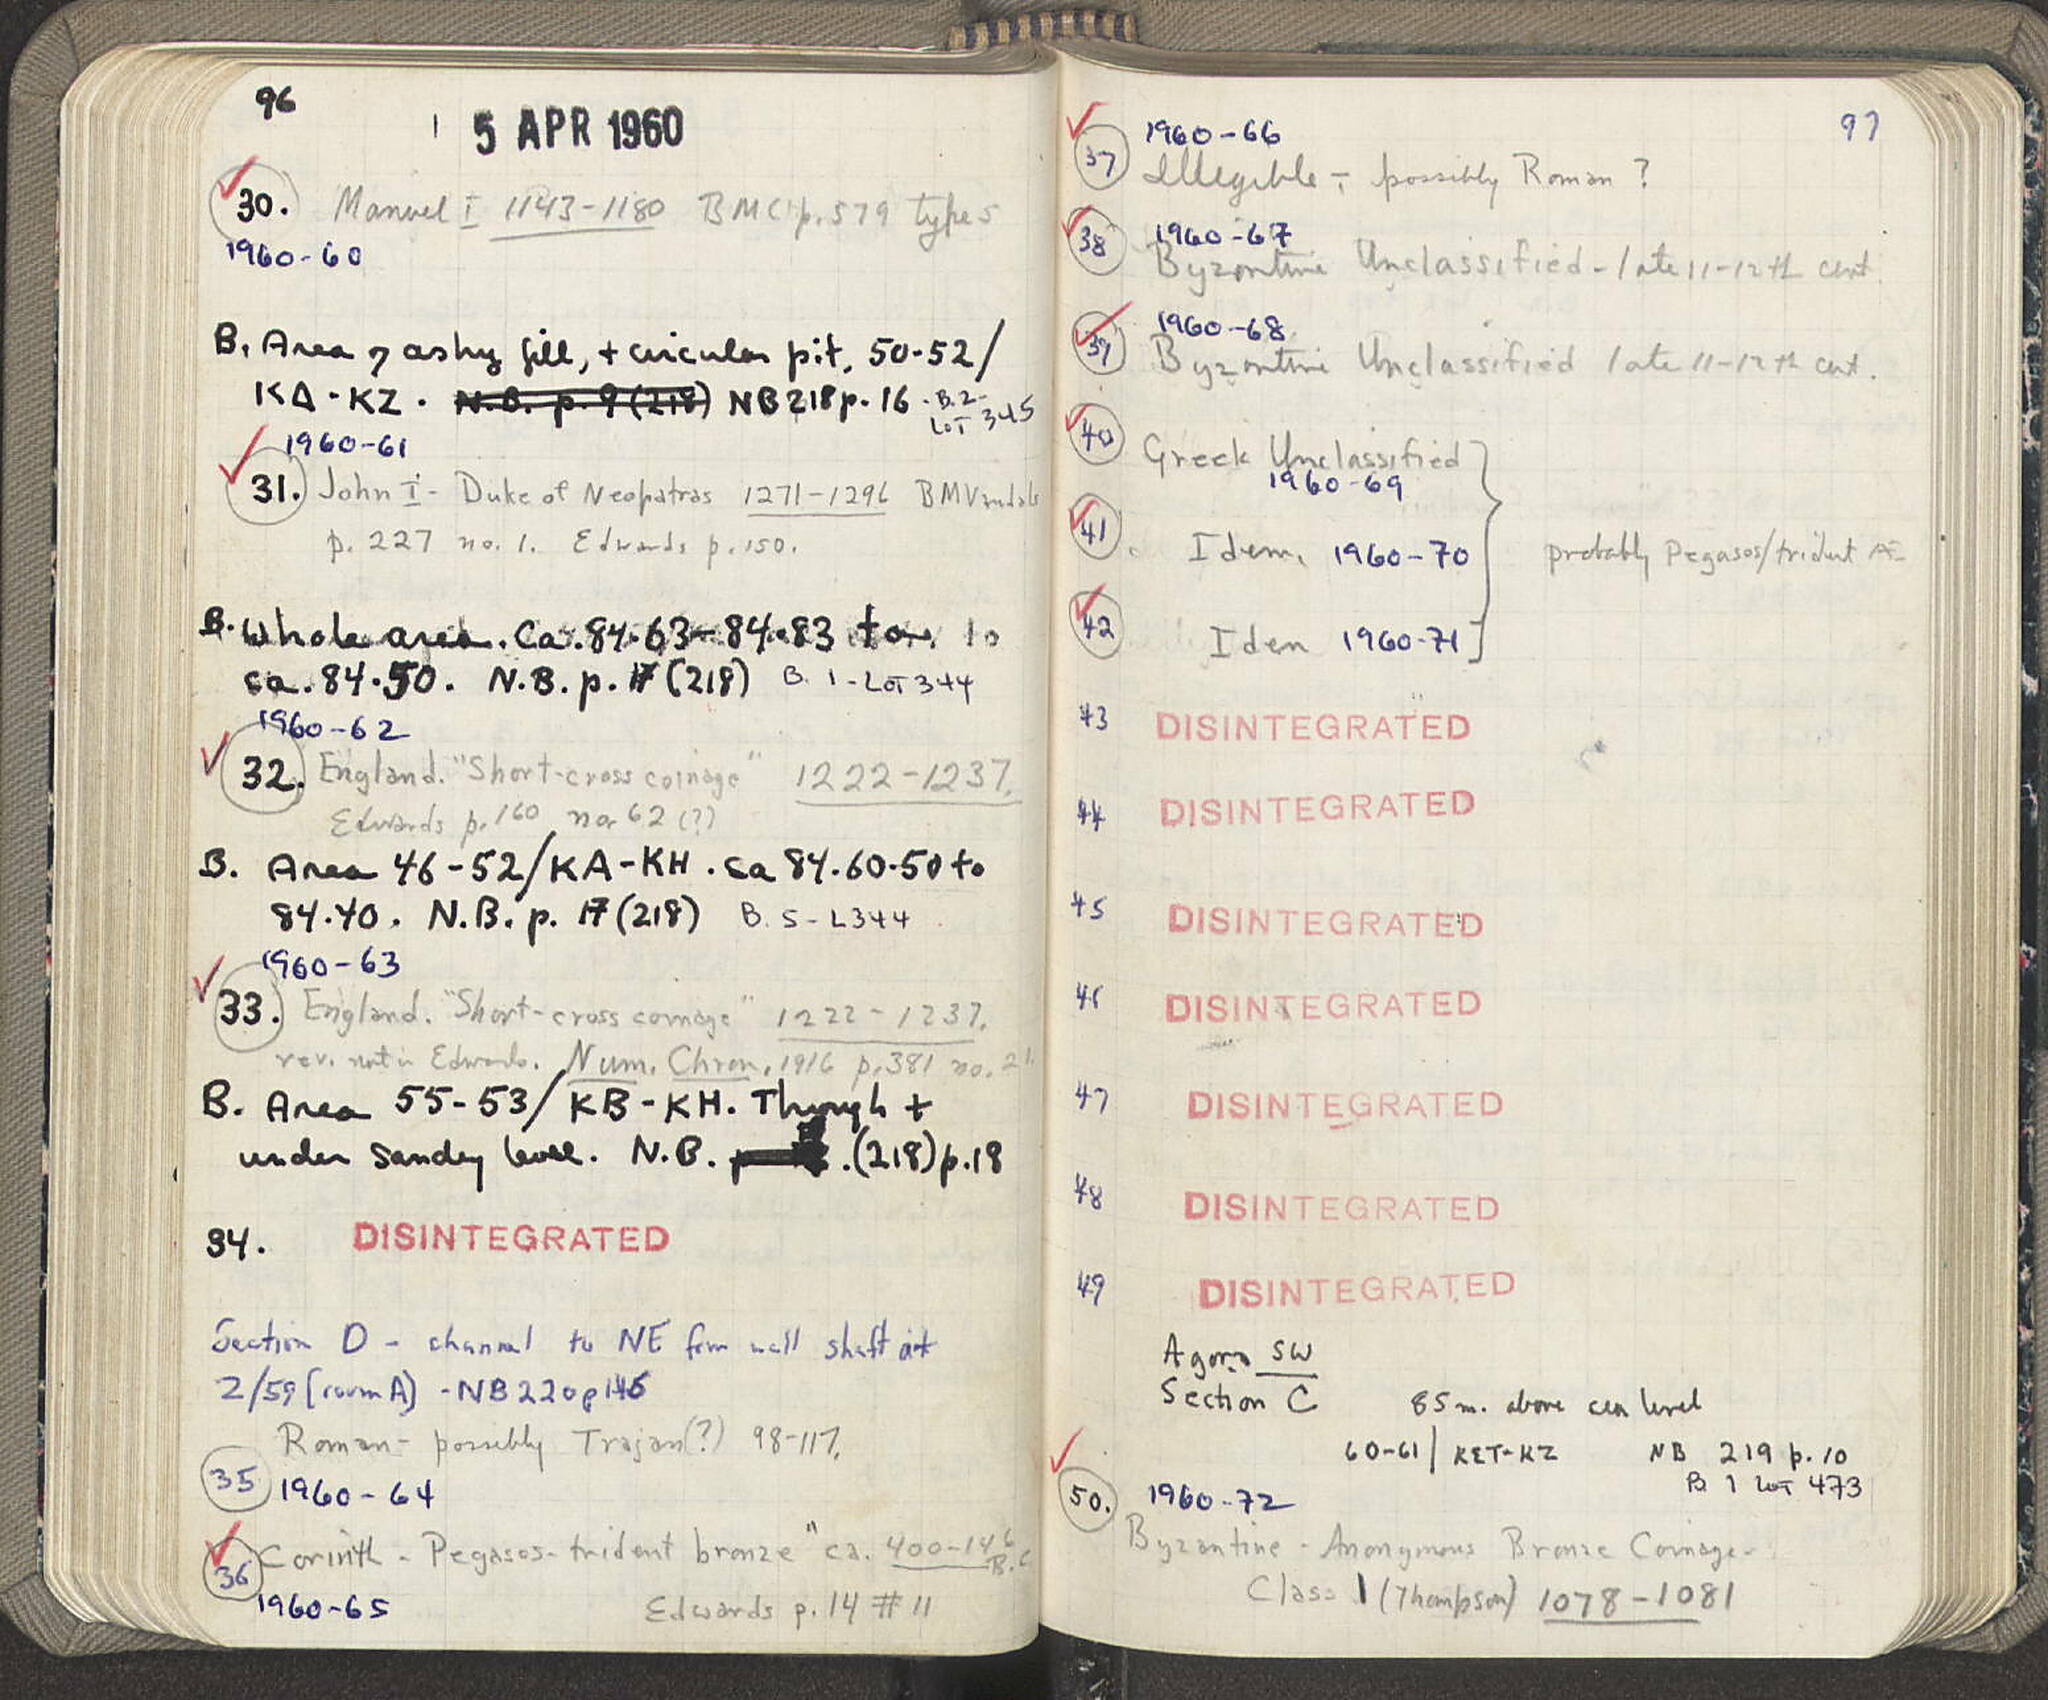 96
5 APR 1960
30. Manuel I 1143-1180 BMC p. 579 type 5
1960-60
B. Area of ashy fill, + circular pit, 50-52/
KA-KZ. N.B. p. 9 (218) NB 218 p. 16 - B.2-
LOT 345
1960-61
31. John I - Duke of Neopatras 1271-1296 BMVandals
p. 227 no. 1. Edwards p. 150.
B. Whole area. Ca. 84.63-84.83 to
ca. 84.50. N.B. p. 17 (218) B. 1 - LOT 344
1960-62
32. England. "Short-cross coinage" 1222-1237.
Edwards p. 160 no. 62 (?)
B. Area 46-52/KA-KH. ca 84.60-50 to
84.40. N.B. p. 17 (218) B. 5 - L344
1960-63
33. England. "Short-cross coinage" 1222-1237.
rev. not in Edwards. Num. Chron. 1916 p. 381 no. 21.
B. Area 55-53/KB-KH. Through +
under sandy level. N.B. (218) p. 18
34. DISINTEGRATED
Section D - channel to NE from well shaft at
Z/59 (room A) - NB 220 p 146
Roman - possibly Trajan (?) 98-117.
35 1960-64
36 Corinth - Pegasos-trident bronze" ca. 400-146
B.C
1960-65 Edwards p. 14 # 11
97
1960-66
37 Illegible - possibly Roman ?
38 1960-67
Byzantine Unclassified - late 11-12th cent.
1960-68
39 Byzantine Unclassified late 11-12th cent.
40 Greek Unclassified
1960-69
41. Idem. 1960-70 probably Pegasos/trident AE
42 Idem 1960-71
43 DISINTEGRATED
44 DISINTEGRATED
45 DISINTEGRATED
46 DISINTEGRATED
47 DISINTEGRATED
48 DISINTEGRATED
49 DISINTEGRATED
Agora SW
Section C 85 m. above sea level
60-61/KET-KZ NB 219 p. 10
B 1 LOT 473
50. 1960-72
Byzantine - Anonymous Bronze Coinage -
Class I (Thompson) 1078-1081